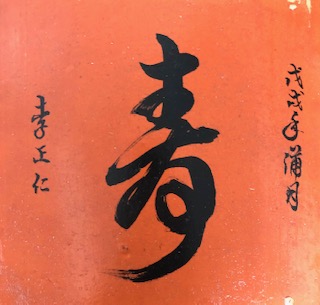 戊戌年蒲月
壽
李正仁